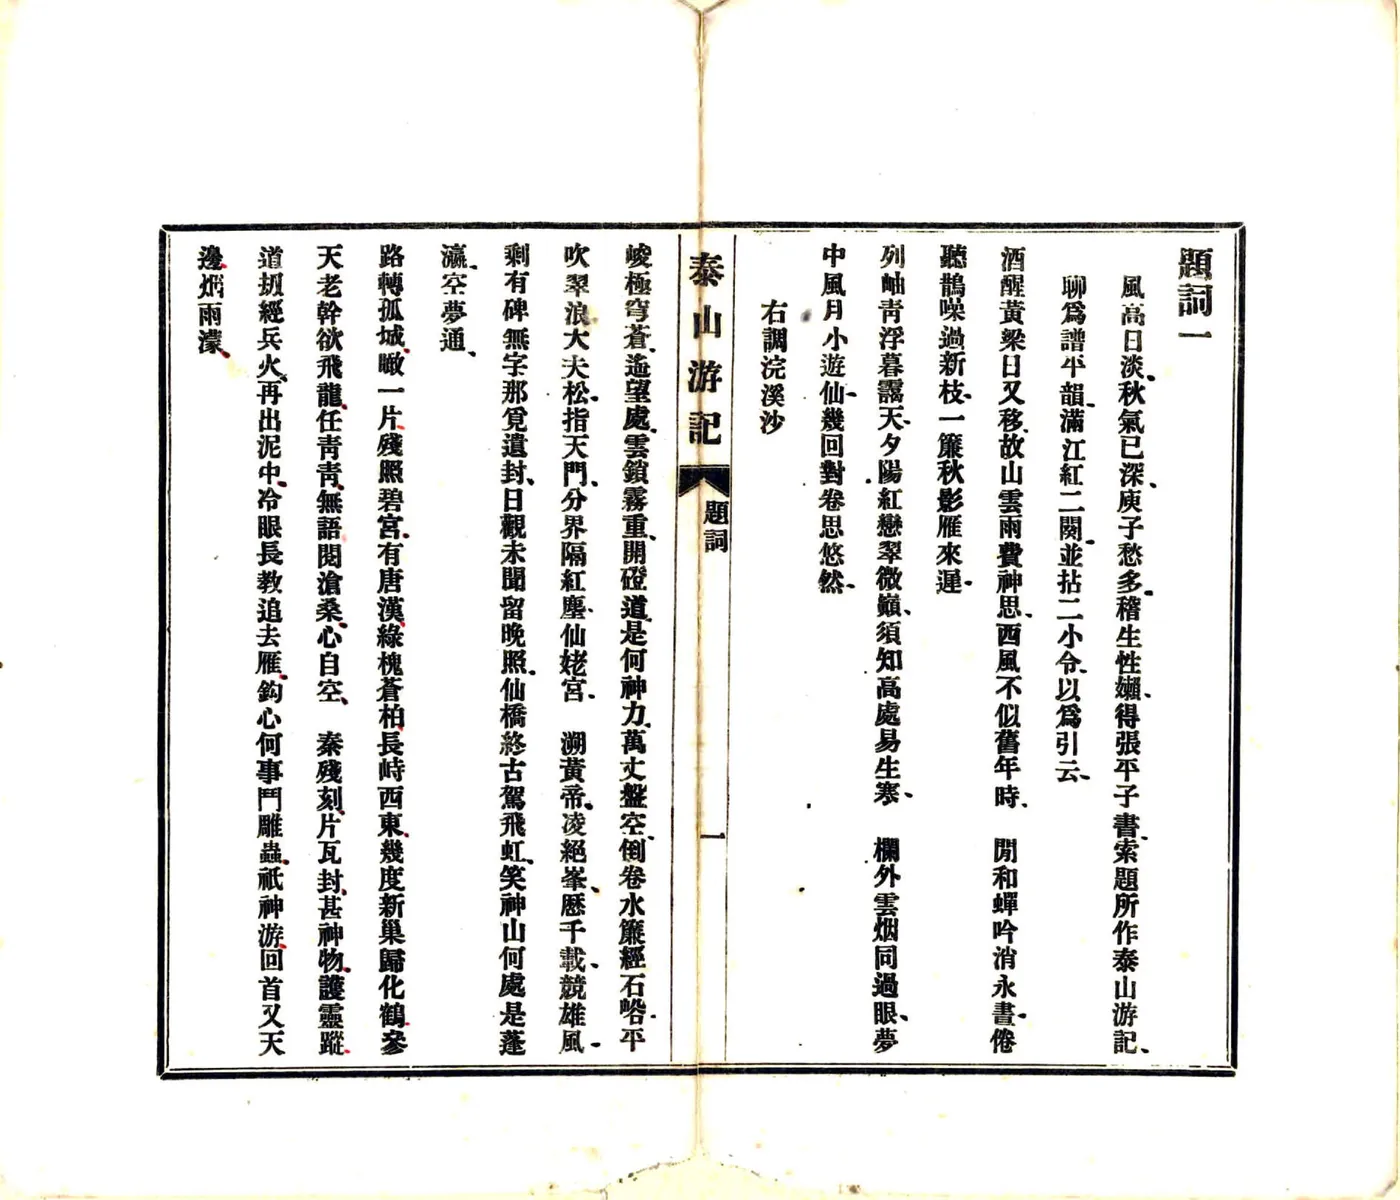 題詞一
風高日淡、秋氣已深、庾子愁多、稽生性嬾、得張平子書、索題所作泰山游記、
聊爲譜平韻、滿江紅二闋、並拈二小令、以爲引云、
酒醒黃粱日又移、故山雲雨費神思、西風不似舊年時、　閒和蟬吟消永晝、倦
聽鵲噪過新枝、一簾秋影雁來遲、
列岫青浮暮靄天、夕陽紅戀翠微巔、須知高處易生寒、　欄外雲烟同過眼、夢
中風月小遊仙、幾回對卷思悠然、
右調浣溪沙
泰山游記
題詞
一
峻極穹蒼、遙望處、雲鎖霧重、開磴道、是何神力、萬丈盤空、倒卷水簾經石峪、平
吹翠浪大夫松、指天門、分界隔紅塵、仙姥宮、　溯黃帝、凌絕峯、歷千載、競雄風、
剩有碑無字、那覓遺封、日觀未聞留晚照、仙橋終古駕飛虹、笑神山何處是蓬
瀛、空夢通、
路轉孤城、瞰一片、殘照碧宮、有唐漢、綠槐蒼柏、長峙西東、幾度新巢歸化鶴、參
天老幹欲飛龍、任青青、無語閱滄桑、心自空、　秦殘刻、片瓦封、甚神物、護靈蹤、
道刼經兵火、再出泥中、冷眼長教追去雁、鈎心何事鬥雕蟲、祇神游、回首又天
邊、烟雨濛、